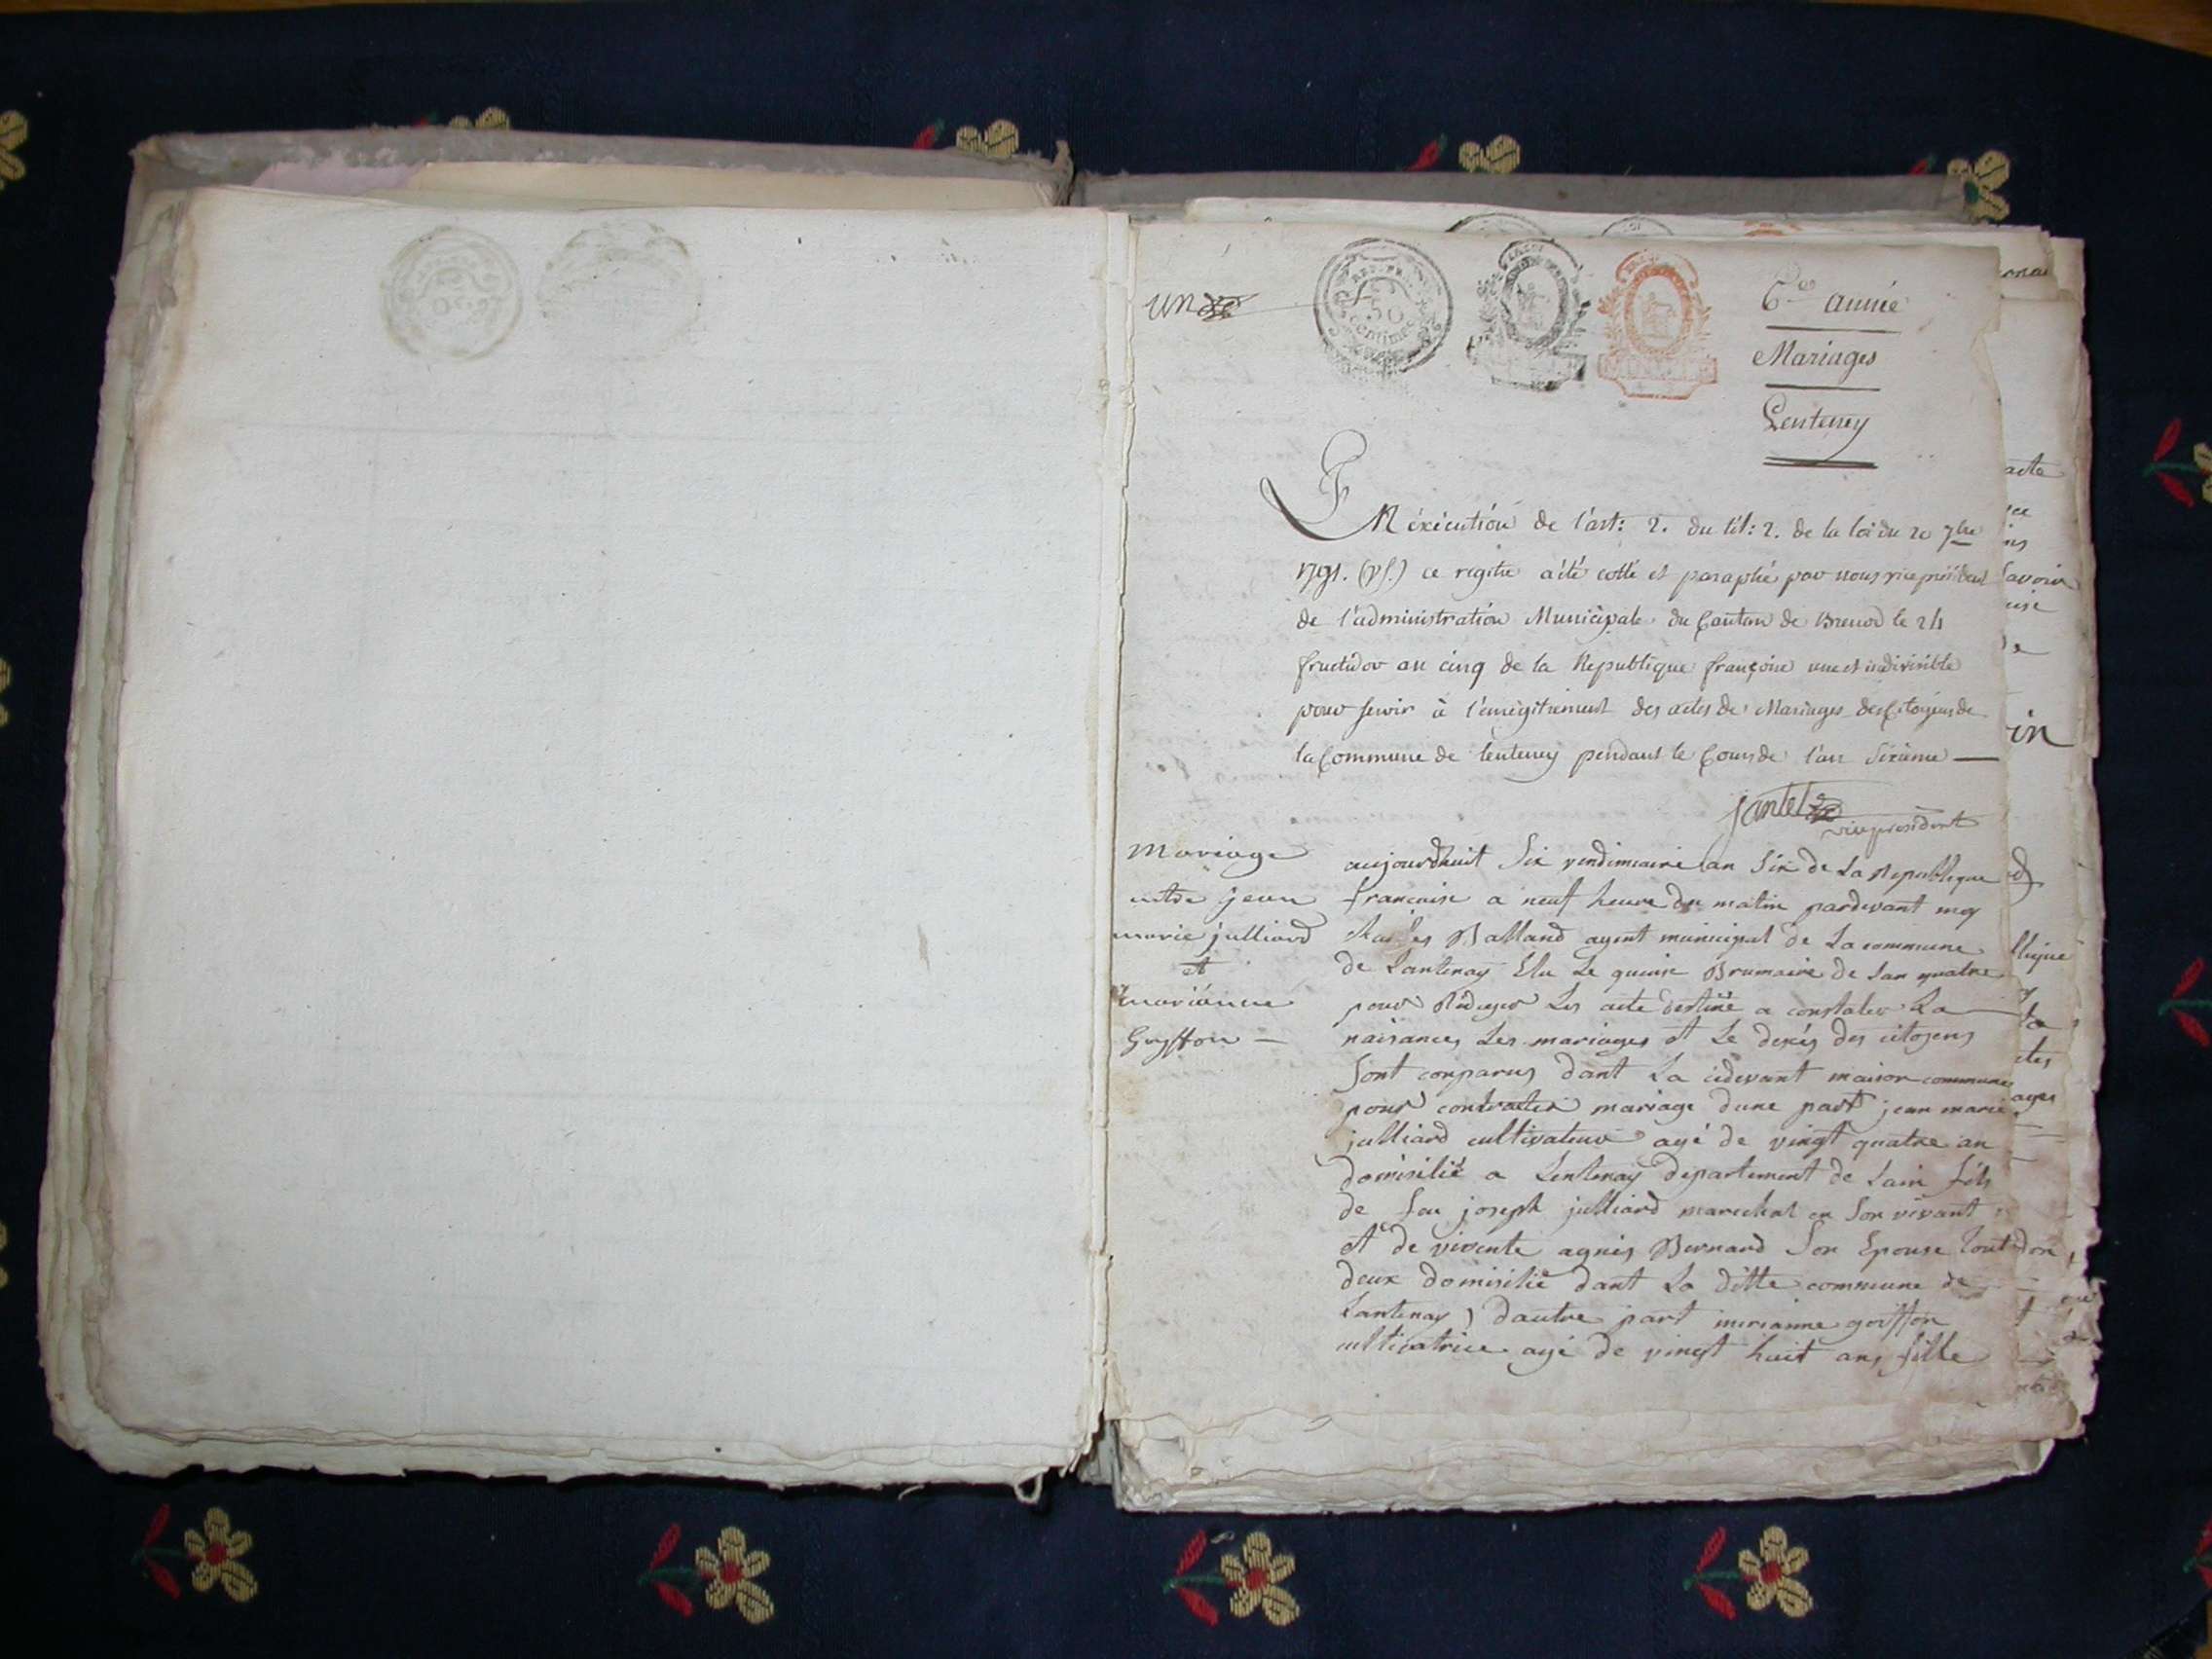 un
REP. FRA.
50
centimes
6.e année
Mariages
Lenteney
EN éxécution de l'art: 2. du tit: 2. de la loi du 20 7bre
1791. (v.s.) ce regitre a été cotté et paraphé par nous vice président
de l'administration Municipale du Canton de Brenod le 24
fructidor an cinq de la Republique françoise une et indivisible
pour servir à l'enregitrement des actes de Mariages des Citoyens de
la Commune de lenteney pendant le Cours de l'an Sixieme
jantet
vice president
Mariage
entre jean
marie julliard
et
marianne
Guyffon
aujourdhuit Six vendimiaire an Six de La Republique
francaise a neuf heure du matin pardevant moy
Balland agent municipal de La commune
de Lantenay Elu Le quinse Brumaire de Lan quatre
pour Rediger Les acte destiné a constater La
naisances Les mariages et Le decés des citoyens
Sont conparus dant La cidevant maison commune
pour contracter mariage dune part jean marie
julliard cultivateur agé de vingt quatre an
domisilié a Lentenay departement de Lain fils
de feu joseph julliard marechal en Son vivant
et de vivente agnés Bernard Son Epouse tout
deux domisilié dant La ditte commune de
Lantenay) dautre part marianne goiffon
cultivatrice agé de vingt huit ans fille